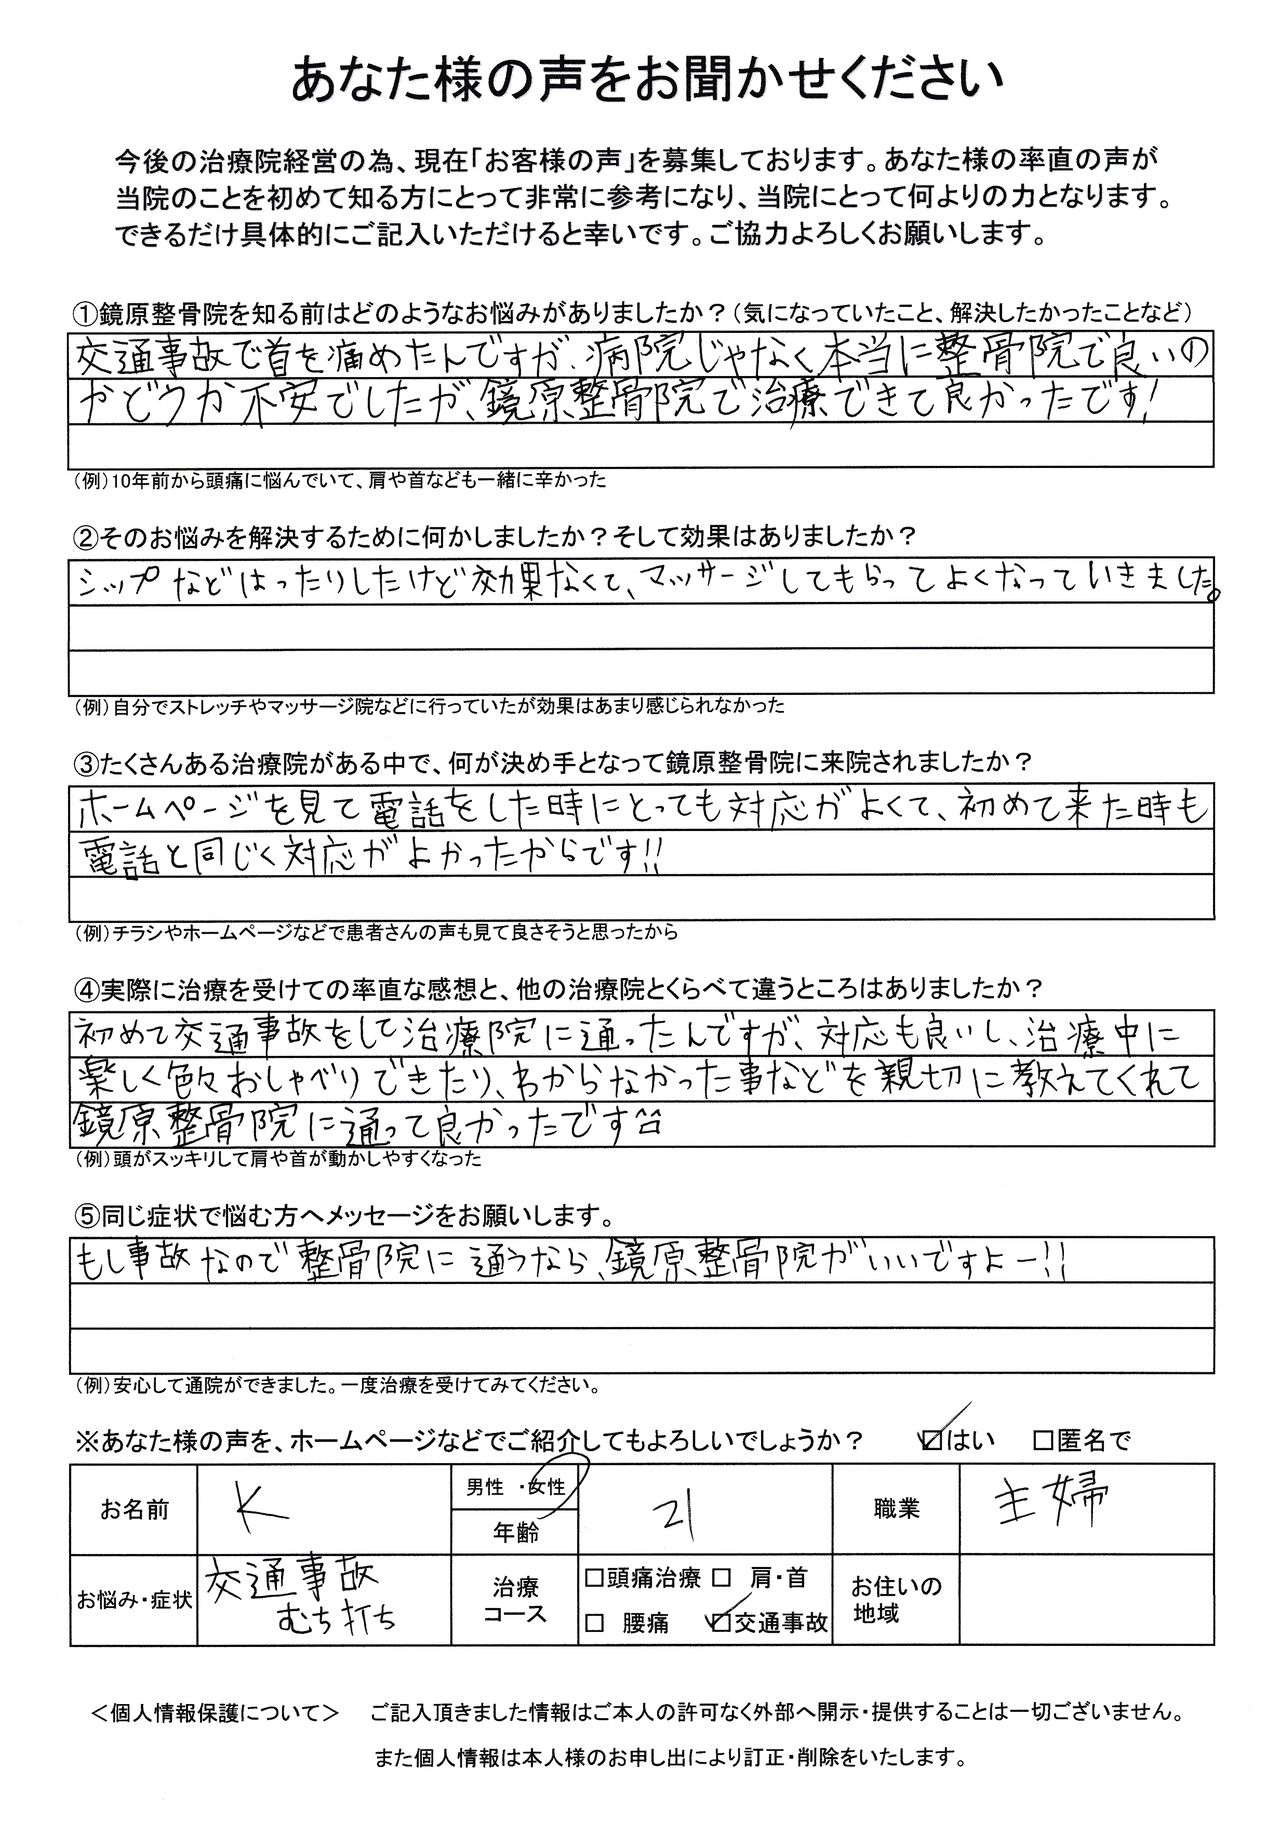 あなた様の声をお聞かせください
今後の治療院経営の為、現在｢お客様の声｣を募集しております。あなた様の率直の声が
当院のことを初めて知る方にとって非常に参考になり、当院にとって何よりの力となります。
できるだけ具体的にご記入いただけると幸いです。ご協力よろしくお願いします。
①鏡原整骨院を知る前はどのようなお悩みがありましたか？（気になっていたこと、解決したかったことなど）
交通事故で首を痛めたんですが、病院じゃなく本当に整骨院で良いの
かどうか不安でしたが、鏡原整骨院で治療できて良かったです!
（例）10年前から頭痛に悩んでいて、肩や首なども一緒に辛かった
②そのお悩みを解決するために何かしましたか？そして効果はありましたか？
シップなどはったりしたけど効果なくて、マッサージしてもらってよくなっていきました。
（例）自分でストレッチやマッサージ院などに行っていたが効果はあまり感じられなかった
③たくさんある治療院がある中で、何が決め手となって鏡原整骨院に来院されましたか？
ホームページを見て電話をした時にとっても対応がよくて、初めて来た時も
電話と同じく対応がよかったからです!!
（例）チラシやホームページなどで患者さんの声も見て良さそうと思ったから
④実際に治療を受けての率直な感想と、他の治療院とくらべて違うところはありましたか？
初めて交通事故をして治療院に通ったんですが、対応も良いし、治療中に
楽しく色々おしゃべりできたり、わからなかった事などを親切に教えてくれて
鏡原整骨院に通って良かったです^^
（例）頭がスッキリして肩や首が動かしやすくなった
⑤同じ症状で悩む方へメッセージをお願いします。
もし事故なので整骨院に通うなら、鏡原整骨院がいいですよー!!
（例）安心して通院ができました。一度治療を受けてみてください。
※あなた様の声を、ホームページなどでご紹介してもよろしいでしょうか？ ☑はい □匿名で
お名前 K 男性・女性 年齢 21 職業 主婦
お悩み・症状 交通事故 むち打ち 治療コース □頭痛治療 □ 肩・首 □ 腰痛 ☑交通事故 お住いの地域
＜個人情報保護について＞ ご記入頂きました情報はご本人の許可なく外部へ開示・提供することは一切ございません。
また個人情報は本人様のお申し出により訂正・削除をいたします。